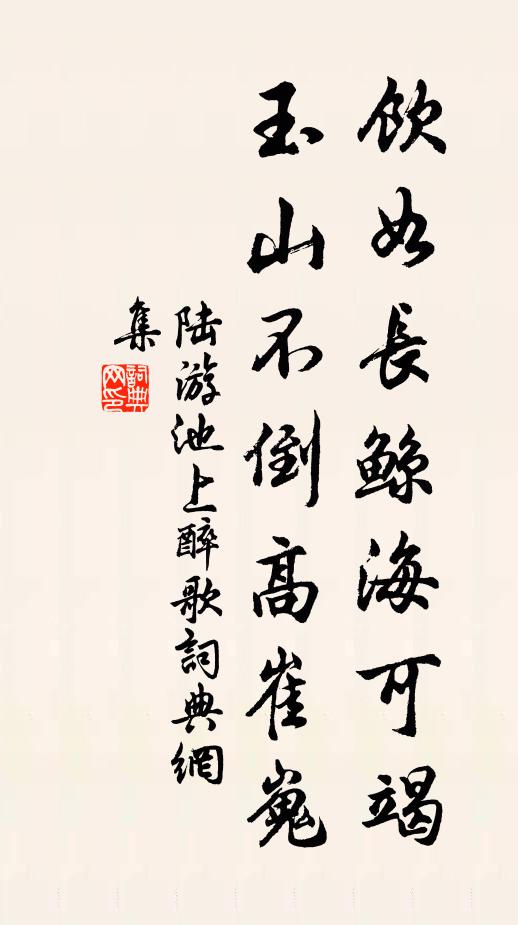 飲如長鲸海可竭
玉山不倒高崔嵬
陆游池上醉歌詞典網
集
詞典
网印